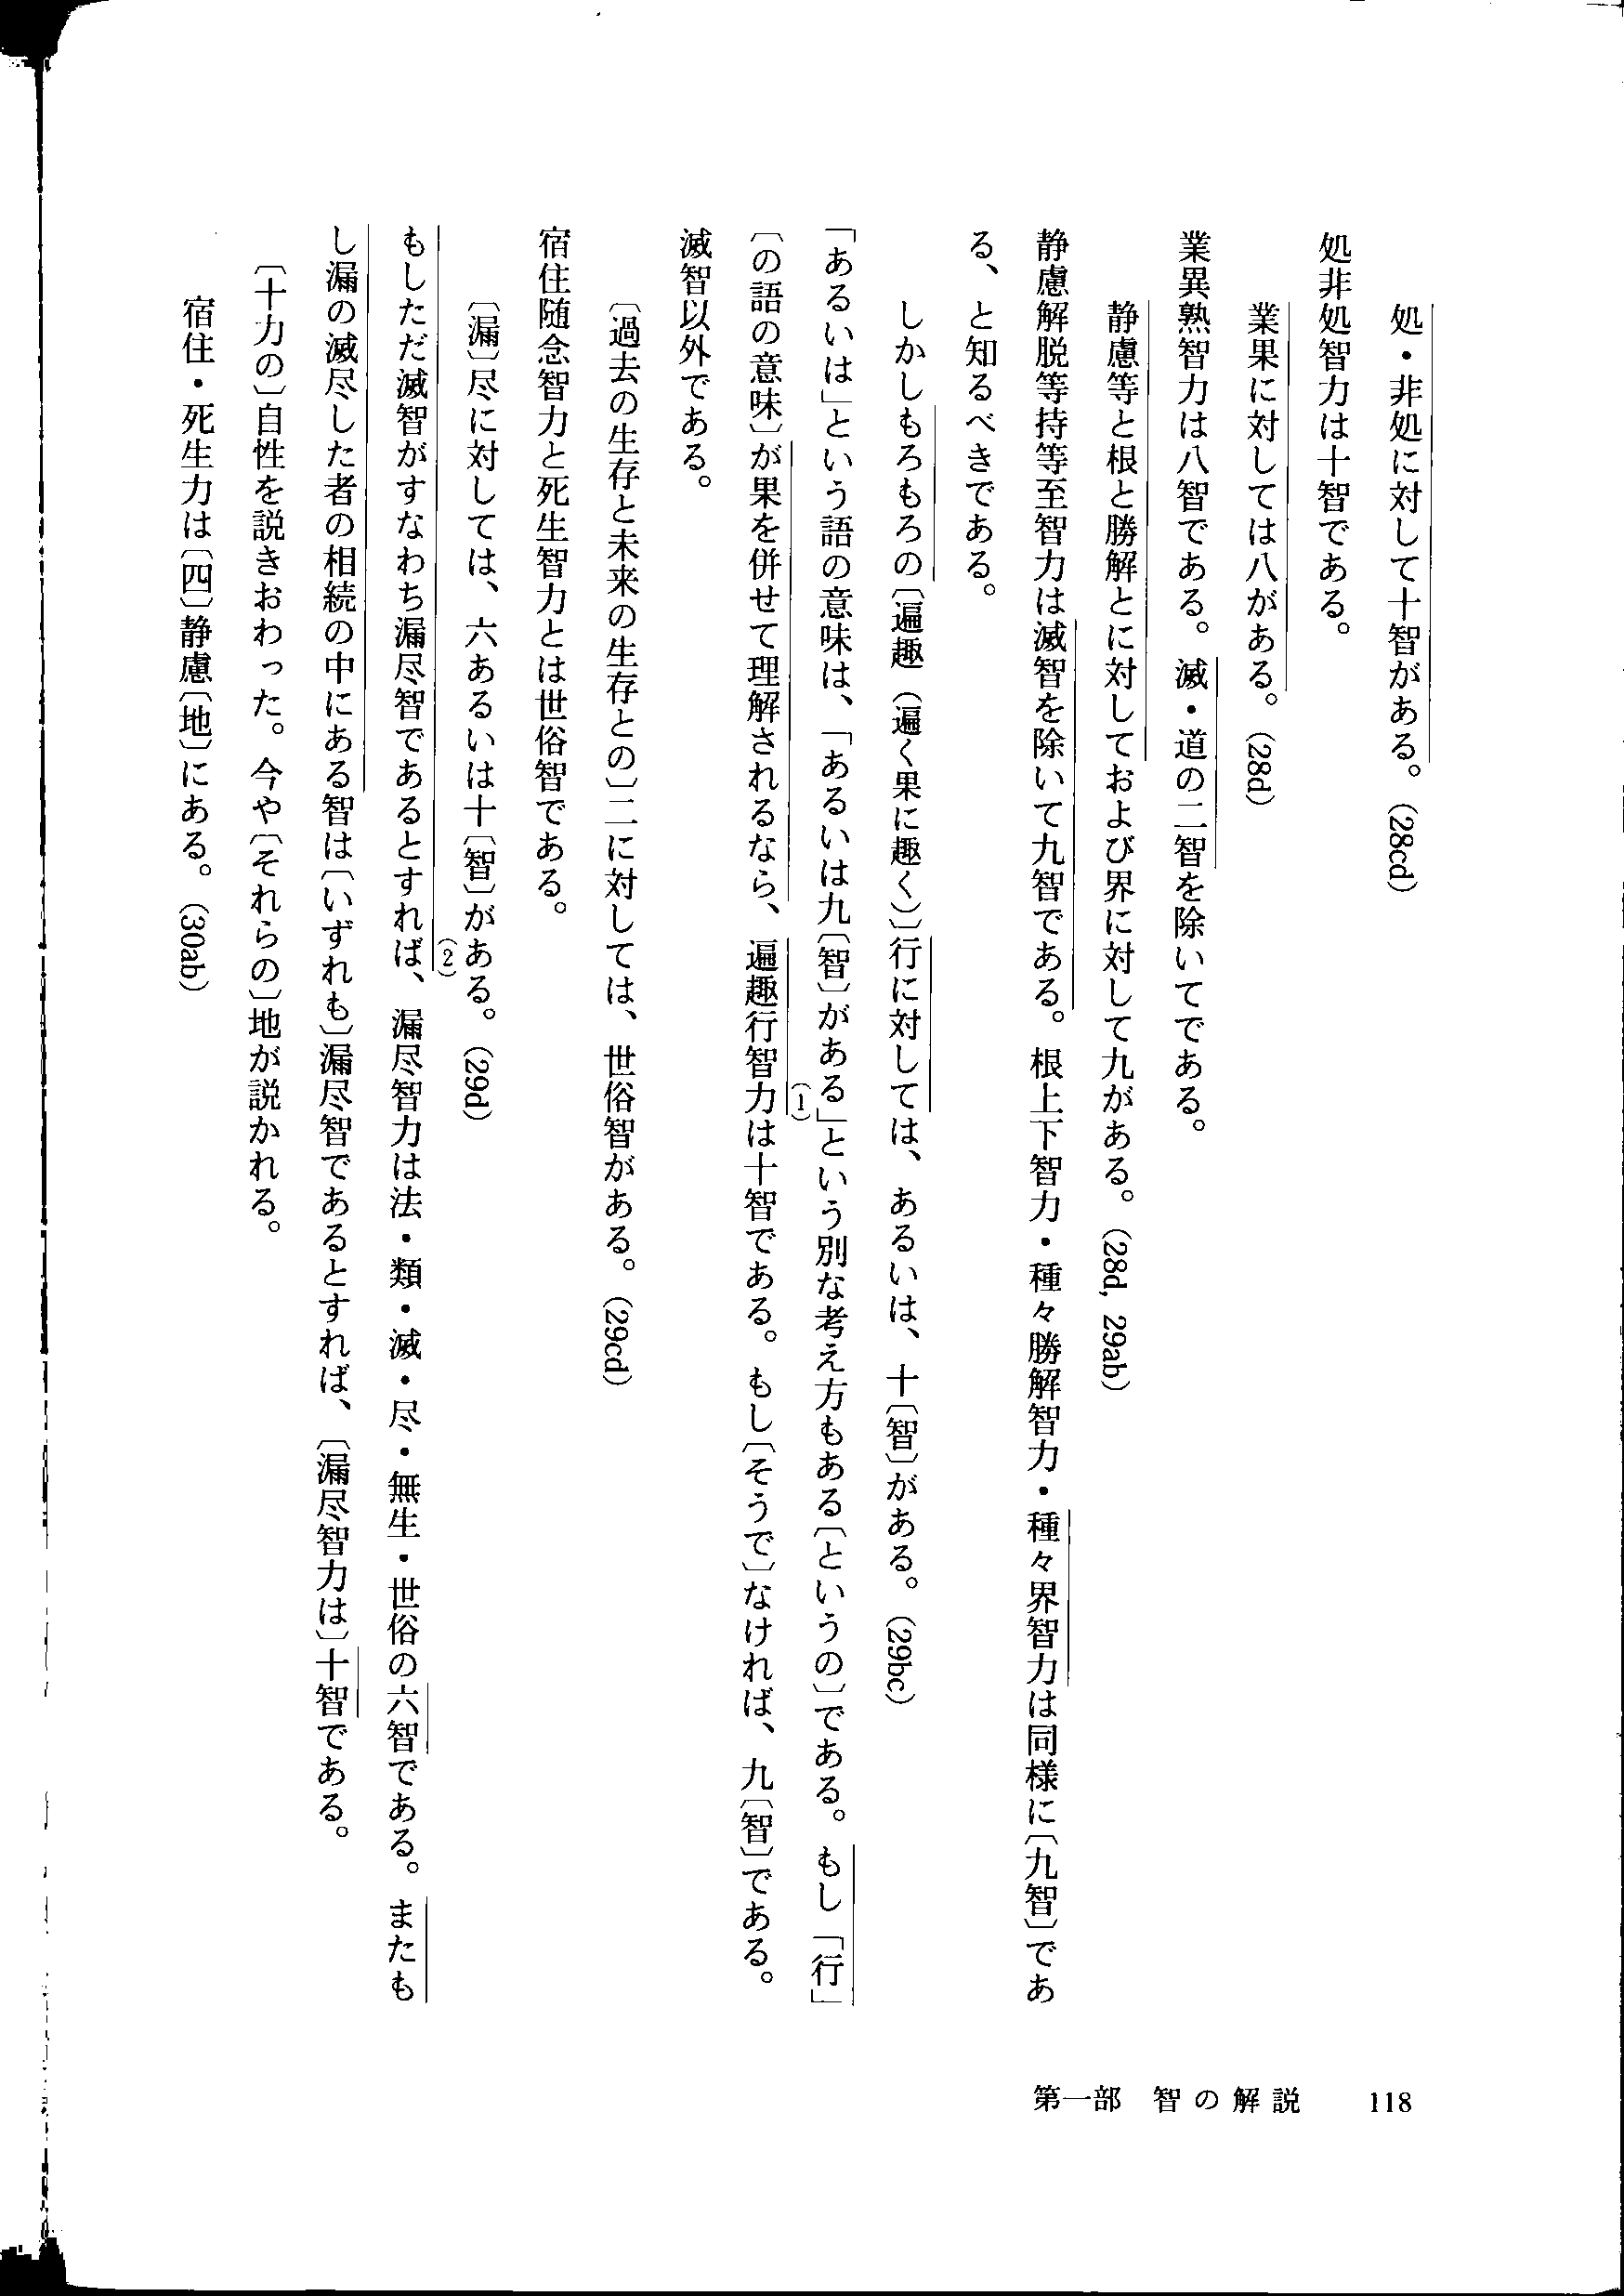 処・非処に対して十智がある。(28cd)
処非処智力は十智である。
業果に対しては八がある。(28d)
業異熟智力は八智である。滅・道の二智を除いてである。
静慮等と根と勝解とに対しておよび界に対して九がある。(28d, 29ab)
静慮解脱等持等至智力は滅智を除いて九智である。根上下智力・種々勝解智力・種々界智力は同様に〔九智〕であ
る、と知るべきである。
しかしもろもろの〔遍趣(遍く果に趣く)〕行に対しては、あるいは、十〔智〕がある。(29bc)
「あるいは」という語の意味は、「あるいは九〔智〕がある」という別な考え方もある〔というの〕である。もし「行」
(1)
〔の語の意味〕が果を併せて理解されるなら、遍趣行智力は十智である。もし〔そうで〕なければ、九〔智〕である。
滅智以外である。
〔過去の生存と未来の生存との〕二に対しては、世俗智がある。(29cd)
宿住随念智力と死生智力とは世俗智である。
〔漏〕尽に対しては、六あるいは十〔智〕がある。(29d)
(2)
もしただ滅智がすなわち漏尽智であるとすれば、漏尽智力は法・類・滅・尽・無生・世俗の六智である。またも
し漏の滅尽した者の相続の中にある智は〔いずれも〕漏尽智であるとすれば、〔漏尽智力は〕十智である。
〔十力の〕自性を説きおわった。今や〔それらの〕地が説かれる。
宿住・死生力は〔四〕静慮〔地〕にある。(30ab)
第一部 智の解説 118